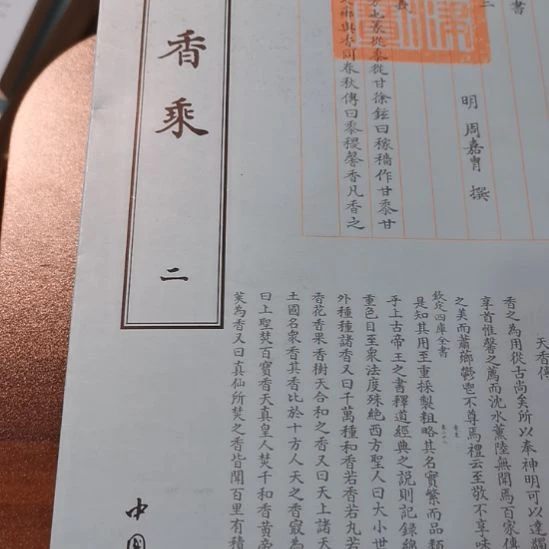 香乘
二
中國
二
書
明 周嘉胄 撰
從黍從甘徐鉉曰稼穡作甘黍甘
香同春秋傳曰黍稷馨香凡香之
天香傳
香之為用從古尚矣所以奉神明可以達蠲
享首惟馨之薦而沈水熏陸無聞焉百家傳
之美而蕭薌鬱鬯不尊焉禮云至敬不享味
欽定四庫全書
是知其用至重採製粗略其名實繁而品類
乎上古帝王之書釋道經典之說則記錄綿
重色目至衆法度殊絶西方聖人曰大小世
外種種諸香又曰千萬種和香若香若丸若
香花香果香樹天合和之香又曰天上諸天
土國名衆香其香比於十方人天之香寂為
曰上聖焚百寶香天真皇人焚千和香黄帝
蓂為香又曰真仙所焚之香皆聞百里有積